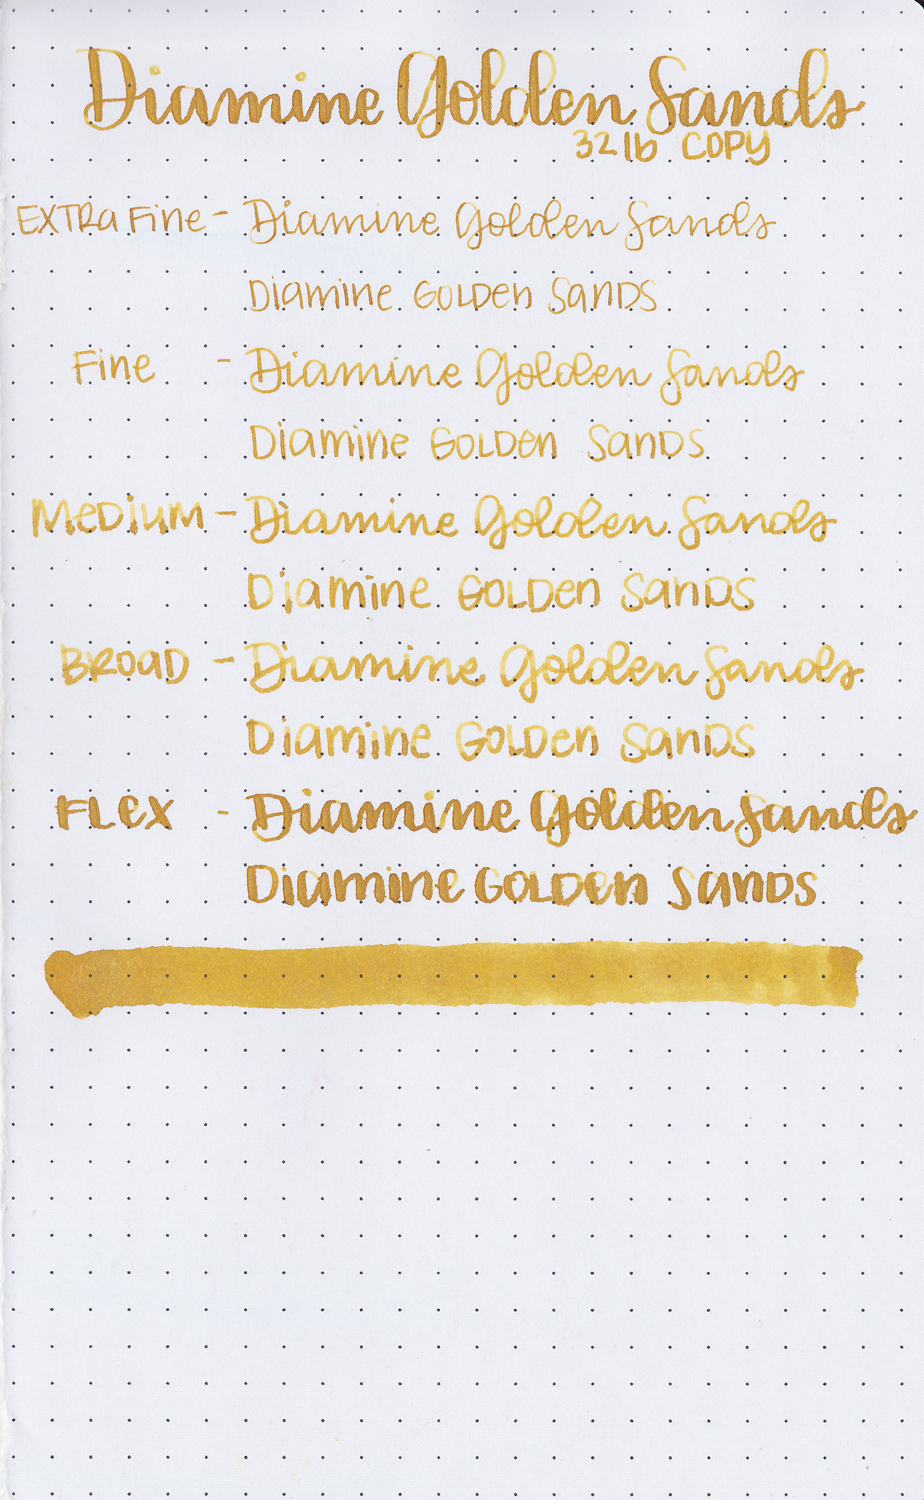 Diamine Golden Sands
32 lb COPY
EXTRA Fine - Diamine Golden Sands
Diamine GOLDen SanDS
Fine - Diamine Golden Sands
Diamine GOLDen SanDS
MeDium - Diamine Golden Sands
Diamine GOLDen SanDS
BROaD - Diamine Golden Sands
Diamine GOLDen SanDS
FLex - Diamine Golden Sands
Diamine GOLDen SanDS